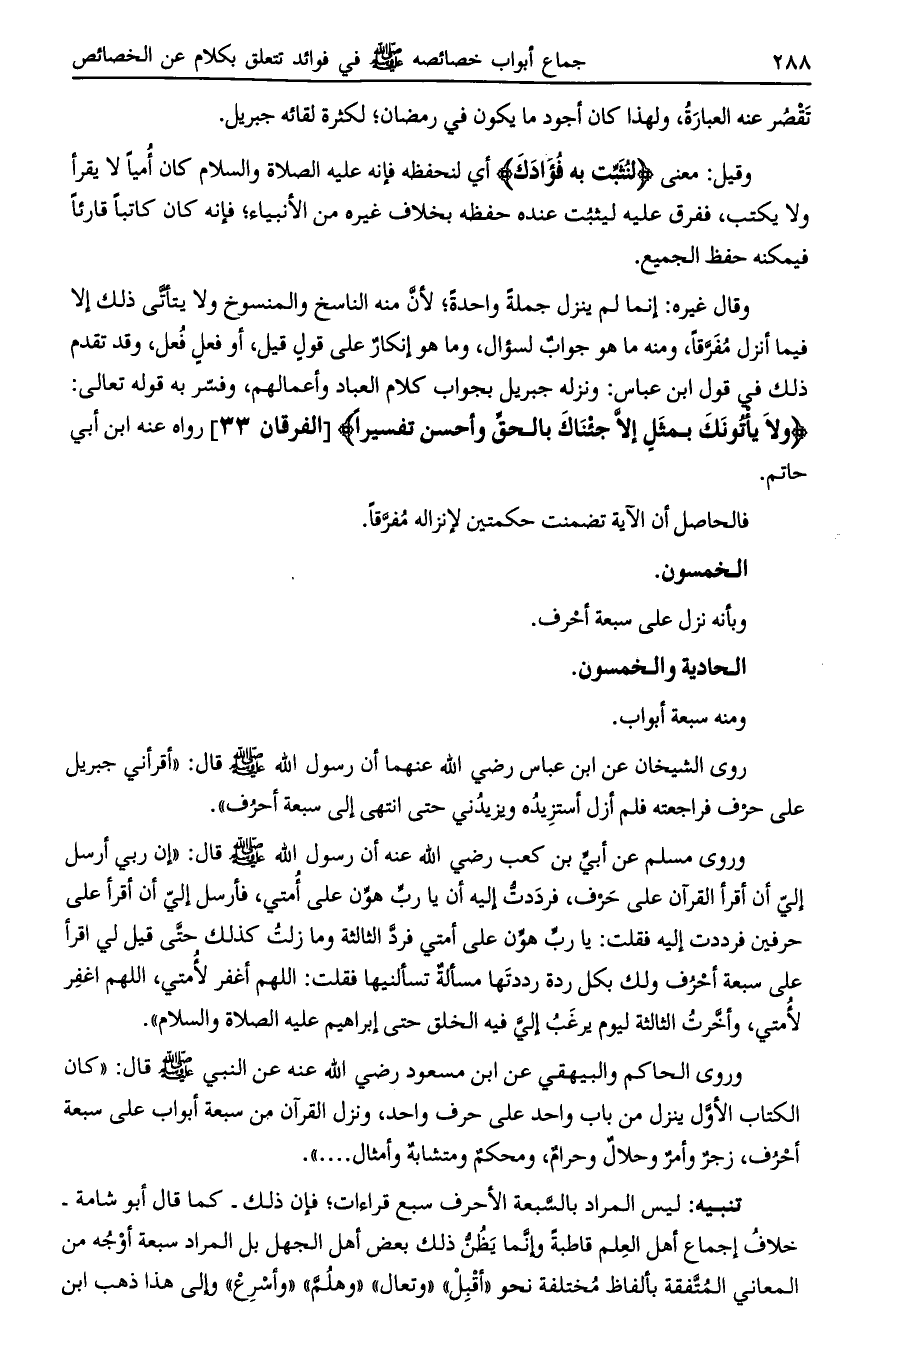 ٢٨٨ جماع أبواب خصائصه ﷺ في فوائد تتعلق بكلام عن الخصائص
تَقْصُر عنه العبارَةُ، ولهذا كان أجود ما يكون في رمضان؛ لكثرة لقائه جبريل.
وقيل: معنى ﴿لنُثَبِّت به فُؤَادَكَ﴾ أي لنحفظه فإنه عليه الصلاة والسلام كان أُمياً لا يقرأ
ولا يكتب، ففرق عليه ليثبُت عنده حفظه بخلاف غيره من الأنبياء؛ فإنه كان كاتباً قارئاً
فيمكنه حفظ الجميع.
وقال غيره: إنما لم ينزل جملةً واحدةً؛ لأنَّ منه الناسخ والمنسوخ ولا يتأتَّى ذلك إلا
فيما أنزل مُفَرَّقاً، ومنه ما هو جوابٌ لسؤال، وما هو إنكارٌ على قولٍ قيل، أو فعلٍ فُعل، وقد تقدم
ذلك في قول ابن عباس: ونزله جبريل بجواب كلام العباد وأعمالهم، وفسّر به قوله تعالى:
﴿ولاَ يأْتُونَكَ بمثَلٍ إلاَّ جئْنَاكَ بالحقِّ وأحسن تفسيراً﴾ [الفرقان ٣٣] رواه عنه ابن أبي
حاتم.
فالحاصل أن الآية تضمنت حكمتين لإنزاله مُفرَّقاً.
الخمسون.
وبأنه نزل على سبعة أحْرف.
الحادية والخمسون.
ومنه سبعة أبواب.
روى الشيخان عن ابن عباس رضي الله عنهما أن رسول الله ﷺ قال: «أقرأني جبريل
على حرْف فراجعته فلم أزل أستزِيدُه ويزيدُني حتى انتهى إلى سبعة أحرُف».
وروى مسلم عن أبيِّ بن كعب رضي الله عنه أن رسول الله ﷺ قال: «إن ربي أرسل
إليّ أن أقرأ القرآن على حَرْف، فردَدتُّ إليه أن يا ربِّ هوِّن على أُمتي، فأرسل إليّ أن أقرأ على
حرفين فرددت إليه فقلت: يا ربِّ هوِّن على أمتي فردَّ الثالثة وما زلتُ كذلك حتَّى قيل لي اقرأ
على سبعة أحْرُف ولك بكل ردة رددتَها مسألةٌ تسألنيها فقلت: اللهم أغفر لأُمتي، اللهم اغفِر
لأُمتي، وأخَّرتُ الثالثة ليوم يرغَبُ إليَّ فيه الخلق حتى إبراهيم عليه الصلاة والسلام».
وروى الحاكم والبيهقي عن ابن مسعود رضي الله عنه عن النبي ﷺ قال: «كان
الكتاب الأوَّل ينزل من باب واحد على حرف واحد، ونزل القرآن من سبعة أبواب على سبعة
أحْرُف، زجرٌ وأمرٌ وحلالٌ وحرامٌ، ومحكمٌ ومتشابهٌ وأمثال....».
تنبيه: ليس المراد بالسَّبعة الأحرف سبع قراءات؛ فإن ذلك ـ كما قال أبو شامة ـ
خلافُ إجماع أهل العِلم قاطبةً وإنَّما يَظُنُّ ذلك بعض أهل الجهل بل المراد سبعة أوْجُه من
المعاني المُتَّفقة بألفاظ مُختلفة نحو «أقْبِلْ» «وتعال» «وهلُمَّ» «وأسْرِعْ» وإلى هذا ذهب ابن